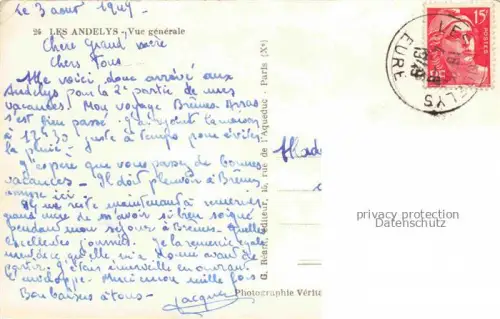 Le 3 août 1949
26 LES ANDELYS - Vue générale
Chère Grand'mère
Chers Tous
Me voici donc arrivé aux
Andelys pour la 2e partie de mes
vacances. Mon voyage Arras
s'est bien passé. J'ai rejoint la maison
à 12h30 juste à temps pour éviter
la pluie.
J'espère que vous passez de bonnes
vacances. Il doit pleuvoir à
comme ici
Il me reste maintenant à remercier
grand'mère de m'avoir si bien soigné
pendant mon séjour à Quelles
excellentes journées. Je la remercie égale
ment de ce qu'elle m'a donné avant de
partir. J'étais émerveillé en ouvrant
l'enveloppe. Merci mon mille fois
Bons baisers à tous
Jacques
G. Réant, éditeur, rue de l'Aqueduc - Paris (Xe)
Photographie Vérita
15F
POSTES
EURE
Mad
privacy protection
Datenschutz